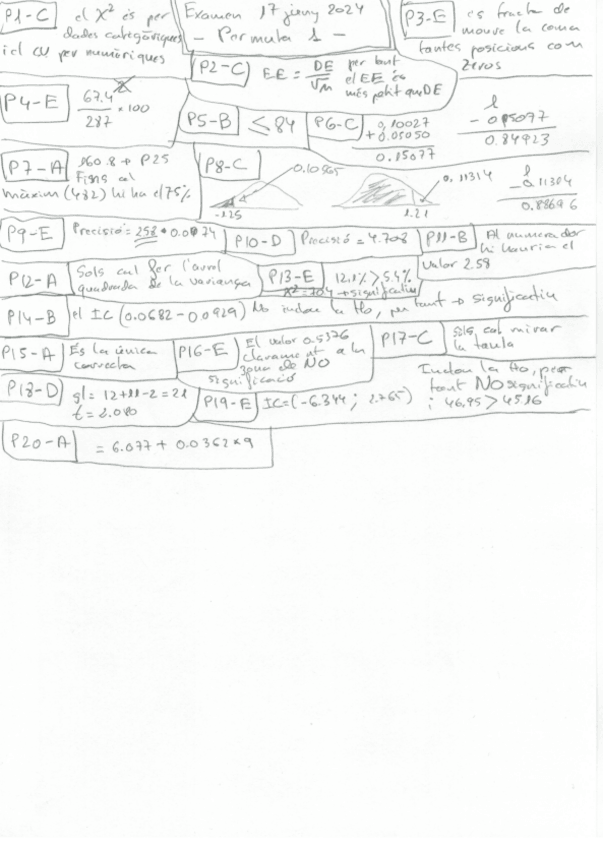 P1-C el χ² és per
dades categòriques
i el CV per numèriques
Examen 17 juny 2024
- Permuta 1 -
P3-E es tracta de
moure la coma
tantes posicions com
zeros
P2-C EE = DE/√n per tant
el EE és
més petit que DE
P4-E 67.4/287 × 100
P5-B ≤ 84
P6-C 0,10027
+ 0.05050
0.15077
1
- 0,15077
0.84923
P7-A 160.8 → P25
Fins al
màxim (482) hi ha el 75%
P8-C 0.10565
-1.25
0,11314
1.21
1
- 0.11314
0.88686
P9-E Precisió = 258 * 0.0174
P10-D Precisió = 4.708
P11-B Al numerador
hi hauria el
valor 2.58
P12-A Sols cal fer l'arrel
quadrada de la variança
P13-E 12.1% > 5.4%
χ² = 70.4 → significatiu
P14-B el IC (0.0682 - 0.0929) No inclou la Ho, per tant → significatiu
P15-A És la única
correcta
P16-E El valor 0.5376
clarament a la
zona de NO
significació
P17-C sols cal mirar
la taula
P18-D gl = 12+11-2 = 21
t = 2.080
P19-E IC = (-6.344 ; 2.765)
Inclou la Ho, per
tant NO significatiu
i 46,95 > 45.16
P20-A = 6.077 + 0.0362 × 9